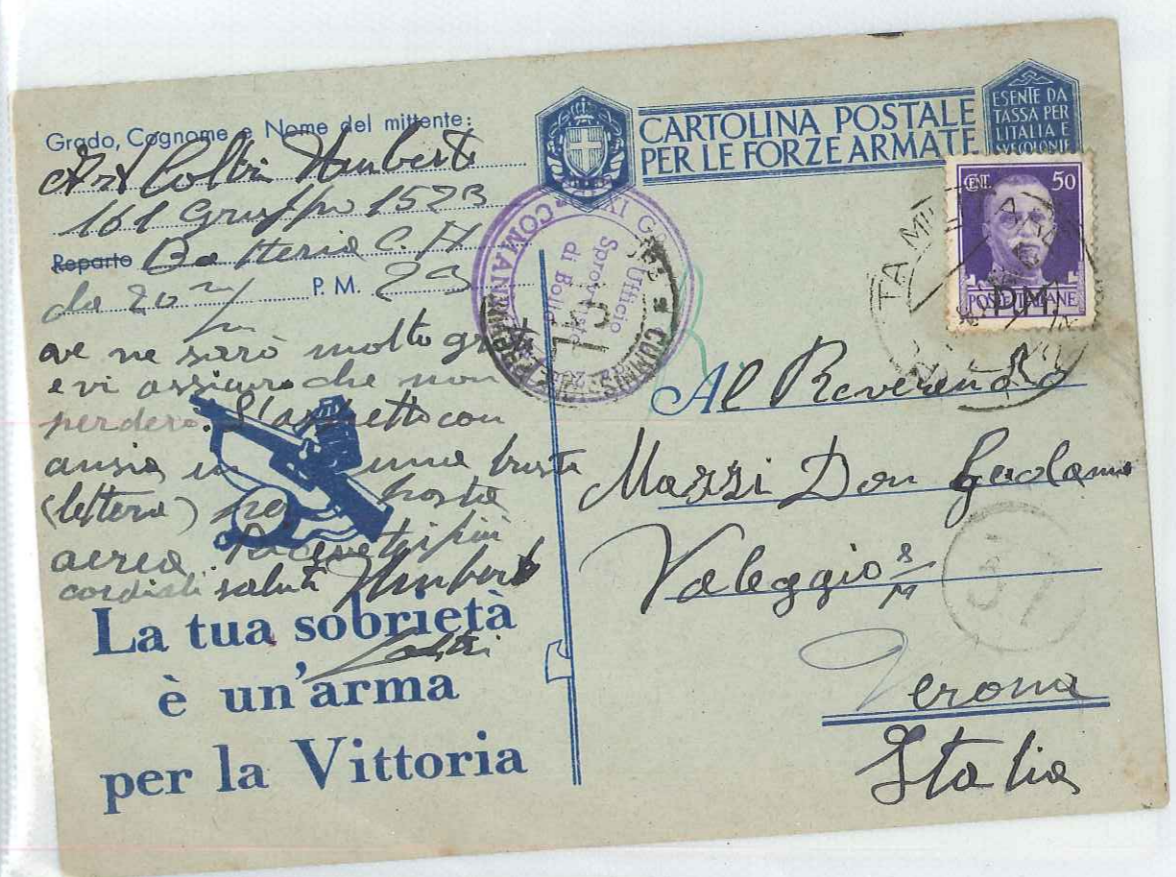 Grado, Cognome e Nome del mittente:
Art Coltri Umberto
161 Gruppo 1523
Reparto Batteria C. A.
da 20 m/m P. M. 23
ve ne sarò molto grato
e vi assicuro che non
perdero. L'aspetto con
ansia, in una busta
(lettera) per posta
aerea. Ricevete i più
cordiali saluti Umberto
Coltri
La tua sobrietà
è un'arma
per la Vittoria
CARTOLINA POSTALE
PER LE FORZE ARMATE
ESENTE DA
TASSA PER
L'ITALIA E
CENT. 50
POSTE ITALIANE
P.M.
COMANDO
Ufficio
Sprovvisto
di Bollo
Al Reverendo
Mazzi Don
Valeggio s/M
Verona
Italia